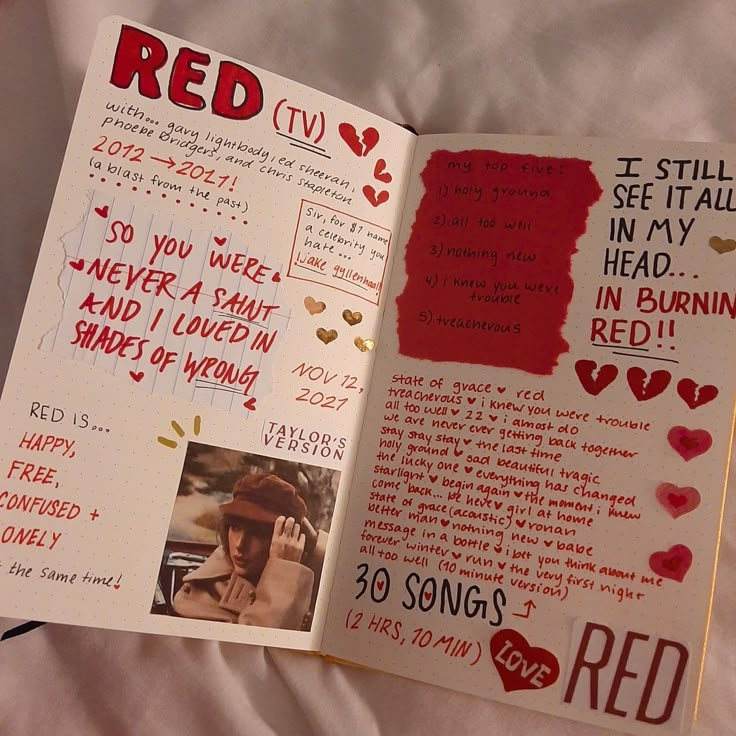 RED (TV)
with... gary lightbody, ed sheeran,
phoebe bridgers, and chris stapleton
2012→2021!
(a blast from the past)
SO YOU WERE
NEVER A SAINT
AND I LOVED IN
SHADES OF WRONG
Sir, for $7 name
a celebrity you
hate...
!Jake gyllenhaal!
NOV 12,
2021
TAYLOR'S
VERSION
RED IS...
HAPPY,
FREE,
CONFUSED +
ONELY
the same time!
my top five:
1) holy ground
2) all too well
3) nothing new
4) i knew you were
trouble
5) treacherous
I STILL
SEE IT ALL
IN MY
HEAD...
IN BURNIN
RED!!
state of grace ♥ red
treacherous ♥ i knew you were trouble
all too well ♥ 22 ♥ i almost do
we are never ever getting back together
stay stay stay ♥ the last time
holy ground ♥ sad beautiful tragic
the lucky one ♥ everything has changed
starlight ♥ begin again ♥ the moment i knew
come back... be here ♥ girl at home
state of grace (acoustic) ♥ ronan
better man ♥ nothing new ♥ babe
message in a bottle ♥ i bet you think about me
forever winter ♥ run ♥ the very first night
all too well (10 minute version)
30 SONGS
(2 HRS, 10 MIN)
LOVE
RED